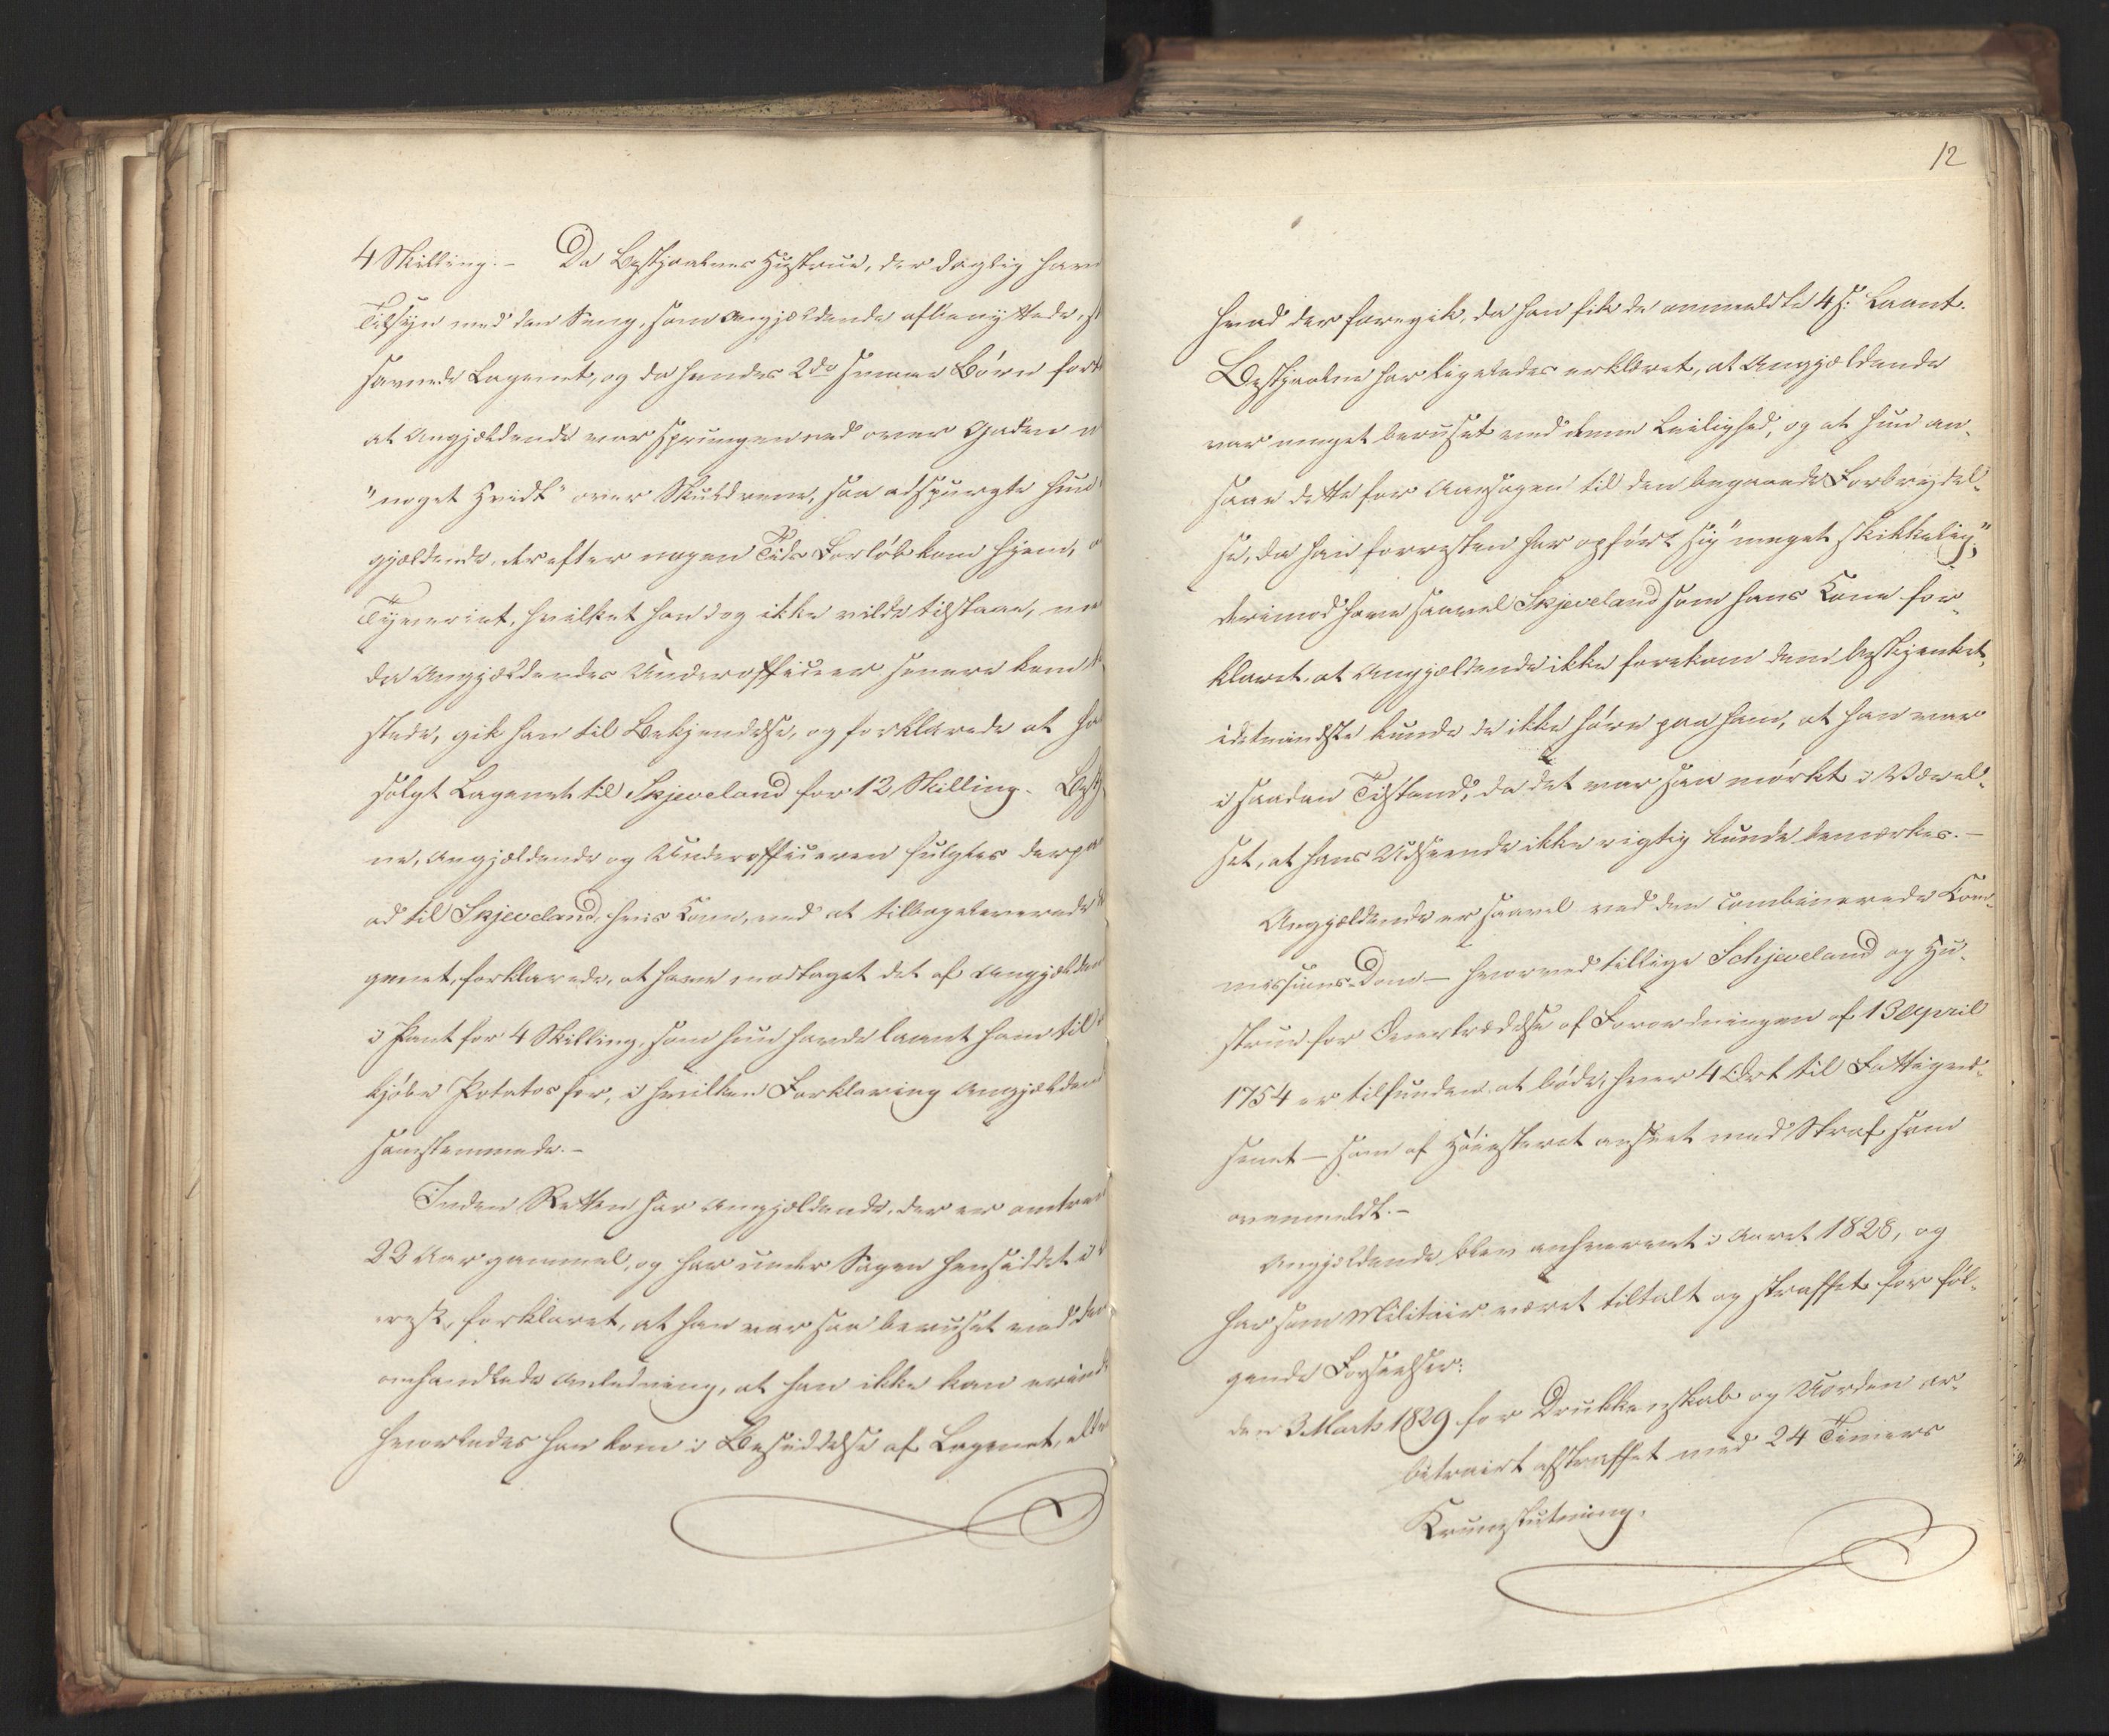 4 Skilling. – Da Bestjaalnes Hustrue, der daglig havd
Tilsyn med den Seng, som Angjældende afbenyttede, st
savnede Lagenet, og da hendes 2de smaae Børn fort
at Angjældende var sprungen ned over Gaden
"noget Hvidt" over Skuldrene, saa adspurgte hun
gjældende, der efter nogen Tids Forløb kom hjem, o
Tyveriet, hvilket han dog ikke vilde tilstaae, me
da Angjældendes Underofficeer senere kom t
stede, gik han til Bekjendelse, og forklarede at ha
solgt Lagenet til Skjeveland for 12 Skilling. Bestj
ne, Angjældende og Underofficeren fulgtes derpa
ad til Skjeveland, hvis Kone, ved at tilbagelevere
genet, forklarede, at have modtaget det af Angjælden
i Pant for 4 Skilling, som hun havde laant ham til
kjøbe Potatos for, i hvilken Forklaring Angjælden
samstemmede. –
Inden Retten har Angjældende, der er omtren
22 Aar gammel, og har under Sagen hensiddet i
rest, forklaret, at han var saa beruset ved den
omhandlede Anledning, at han ikke kan erind
hvorledes han kom i Besiddelse af Lagenet, elle
12
hvad der foregik, da han fik de anmeldte 4 s: Laant.
Bestjaalne har ligeledes erklæret, at Angjældende
var meget beruset ved denne Leilighed, og at hun an-
saae dette for Aarsagen til den begaaede Forbrydel-
se, da han forresten har opført sig "meget skikkelig",
derimod have saavel Skjeveland som hans Kone for-
klaret, at Angjældende ikke forekom dem beskjenket,
idetmindste kunde de ikke høre paa ham, at han var
i saadan Tilstand, da det var saa mørkt i Værel-
set, at hans Udseende ikke rigtig kunde bemærkes. –
Angjældende er saavel ved den combinerede Com-
missions-Dom – hvorved tillige Schjeveland og Hu-
strue for Overtrædelse af Forordningen af 13 April
1754 er tilfunden at bøde, hver 4 Ort til Fattigvæ-
senet – som af Høiesteret anseet med Straf som
ovenmeldt. –
Angjeldende blev anhvervet i Aaret 1828, og
har som Militair været tiltalt og straffet for føl-
gende Forseelser:
den 3 Marts 1829 for Drukkenskab og Uorden ar-
bitrairt afstraffet med 24 Timers
Krumslutning.